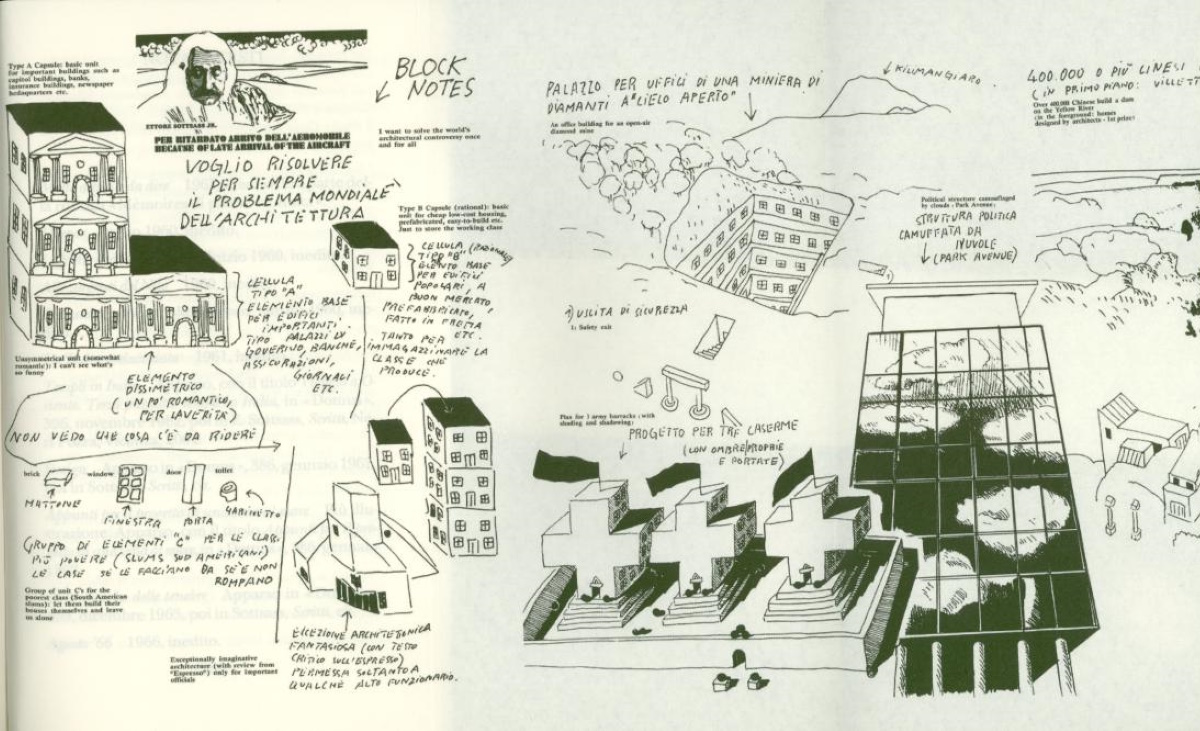 Type A Capsule: basic unit
for important buildings such as
capitol buildings, banks,
insurance buildings, newspaper
hedaquarters etc.
ETTORE SOTTSASS JR.
PER RITARDATO ARRIVO DELL'AEROMOBILE
BECAUSE OF LATE ARRIVAL OF THE AIRCRAFT
BLOCK
NOTES
I want to solve the world's
architectural controversy once
and for all
VOGLIO RISOLVERE
PER SEMPRE
IL PROBLEMA MONDIALE
DELL'ARCHITETTURA
Type B Capsule (rational): basic
unit for cheap low-cost housing,
prefabricated, easy-to-build etc.
Just to store the working class
CELLULA (RAZIONALE)
TIPO "B"
ELEMENTO BASE
PER EDIFICI
POPOLARI, A
BUON MERCATO,
PREFABBRICATO,
FATTO IN FRETTA
ETC.
TANTO PER
IMMAGAZZINARE LA
CLASSE CHE
PRODUCE.
CELLULA
TIPO "A"
ELEMENTO BASE
PER EDIFICI
IMPORTANTI.
TIPO PALAZZI DI
GOVERNO, BANCHE,
ASSICURAZIONI,
GIORNALI
ETC.
Unsymmetrical unit (somewhat
romantic): I can't see what's
so funny
ELEMENTO
DISSIMETRICO
(UN PO' ROMANTICO,
PER LA VERITÀ)
NON VEDO CHE COSA C'È DA RIDERE
brick window door toilet
MATTONE
FINESTRA
PORTA
GABINETTO
GRUPPO DI ELEMENTI "C" PER LE CLASSI
PIÙ POVERE (SLUMS SUD AMERICANI)
LE CASE SE LE FACCIANO DA SÈ E NON
ROMPANO
Group of unit C's for the
poorest class (South American
slums): let them build their
houses themselves and leave
us alone
Exceptionally imaginative
architecture (with review from
"Espresso") only for important
officials
ECCEZIONE ARCHITETTONICA
FANTASIOSA (CON TESTO
CRITICO SULL'ESPRESSO)
PERMESSA SOLTANTO A
QUALCHE ALTO FUNZIONARIO.
PALAZZO PER UFFICI DI UNA MINIERA DI
DIAMANTI A "CIELO APERTO"
An office building for an open-air
diamond mine
KILIMANGIARO
400.000 O PIÙ CINESI
(IN PRIMO PIANO: VILLETT
Over 400,000 Chinese build a dam
on the Yellow River
(in the foreground: homes
designed by architects - 1st prize)
Political structure camouflaged
by clouds (Park Avenue)
STRUTTURA POLITICA
CAMUFFATA DA
NUVOLE
(PARK AVENUE)
1) USCITA DI SICUREZZA
1: Safety exit
Plan for 3 army barracks (with
shading and shadowing)
PROGETTO PER TRE CASERME
(CON OMBRE PROPRIE
E PORTATE)